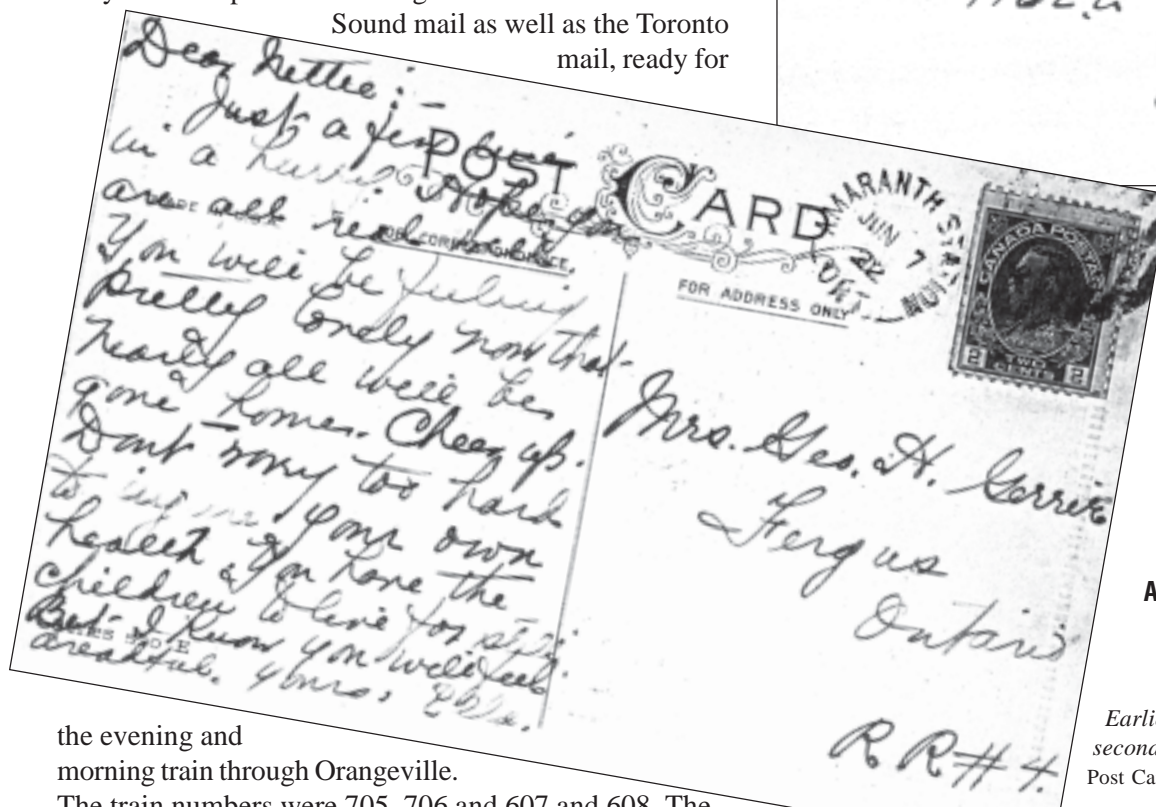 Sound mail as well as the Toronto
mail, ready for
Dear Nettie:-
Just a few lines
in a hurry. Hope you
are all real
You will be feeling
pretty lonely now that
nearly all will be
gone home. Cheer up.
Dont worry too hard
to your own
health & you have the
children to live for still.
But I know you will feel
dreadful. Yours,
POST CARD
FOR ADDRESS ONLY
AMARANTH STA.
JUN 7
22
ONT.
CANADA POSTAGE
2 TWO CENTS 2
Mrs. Geo. H. Gerrie
Fergus
Ontario
R R # 4.
the evening and
morning train through Orangeville.
The train numbers were 705, 706 and 607 and 608. The
A
Earli
second
Post Ca